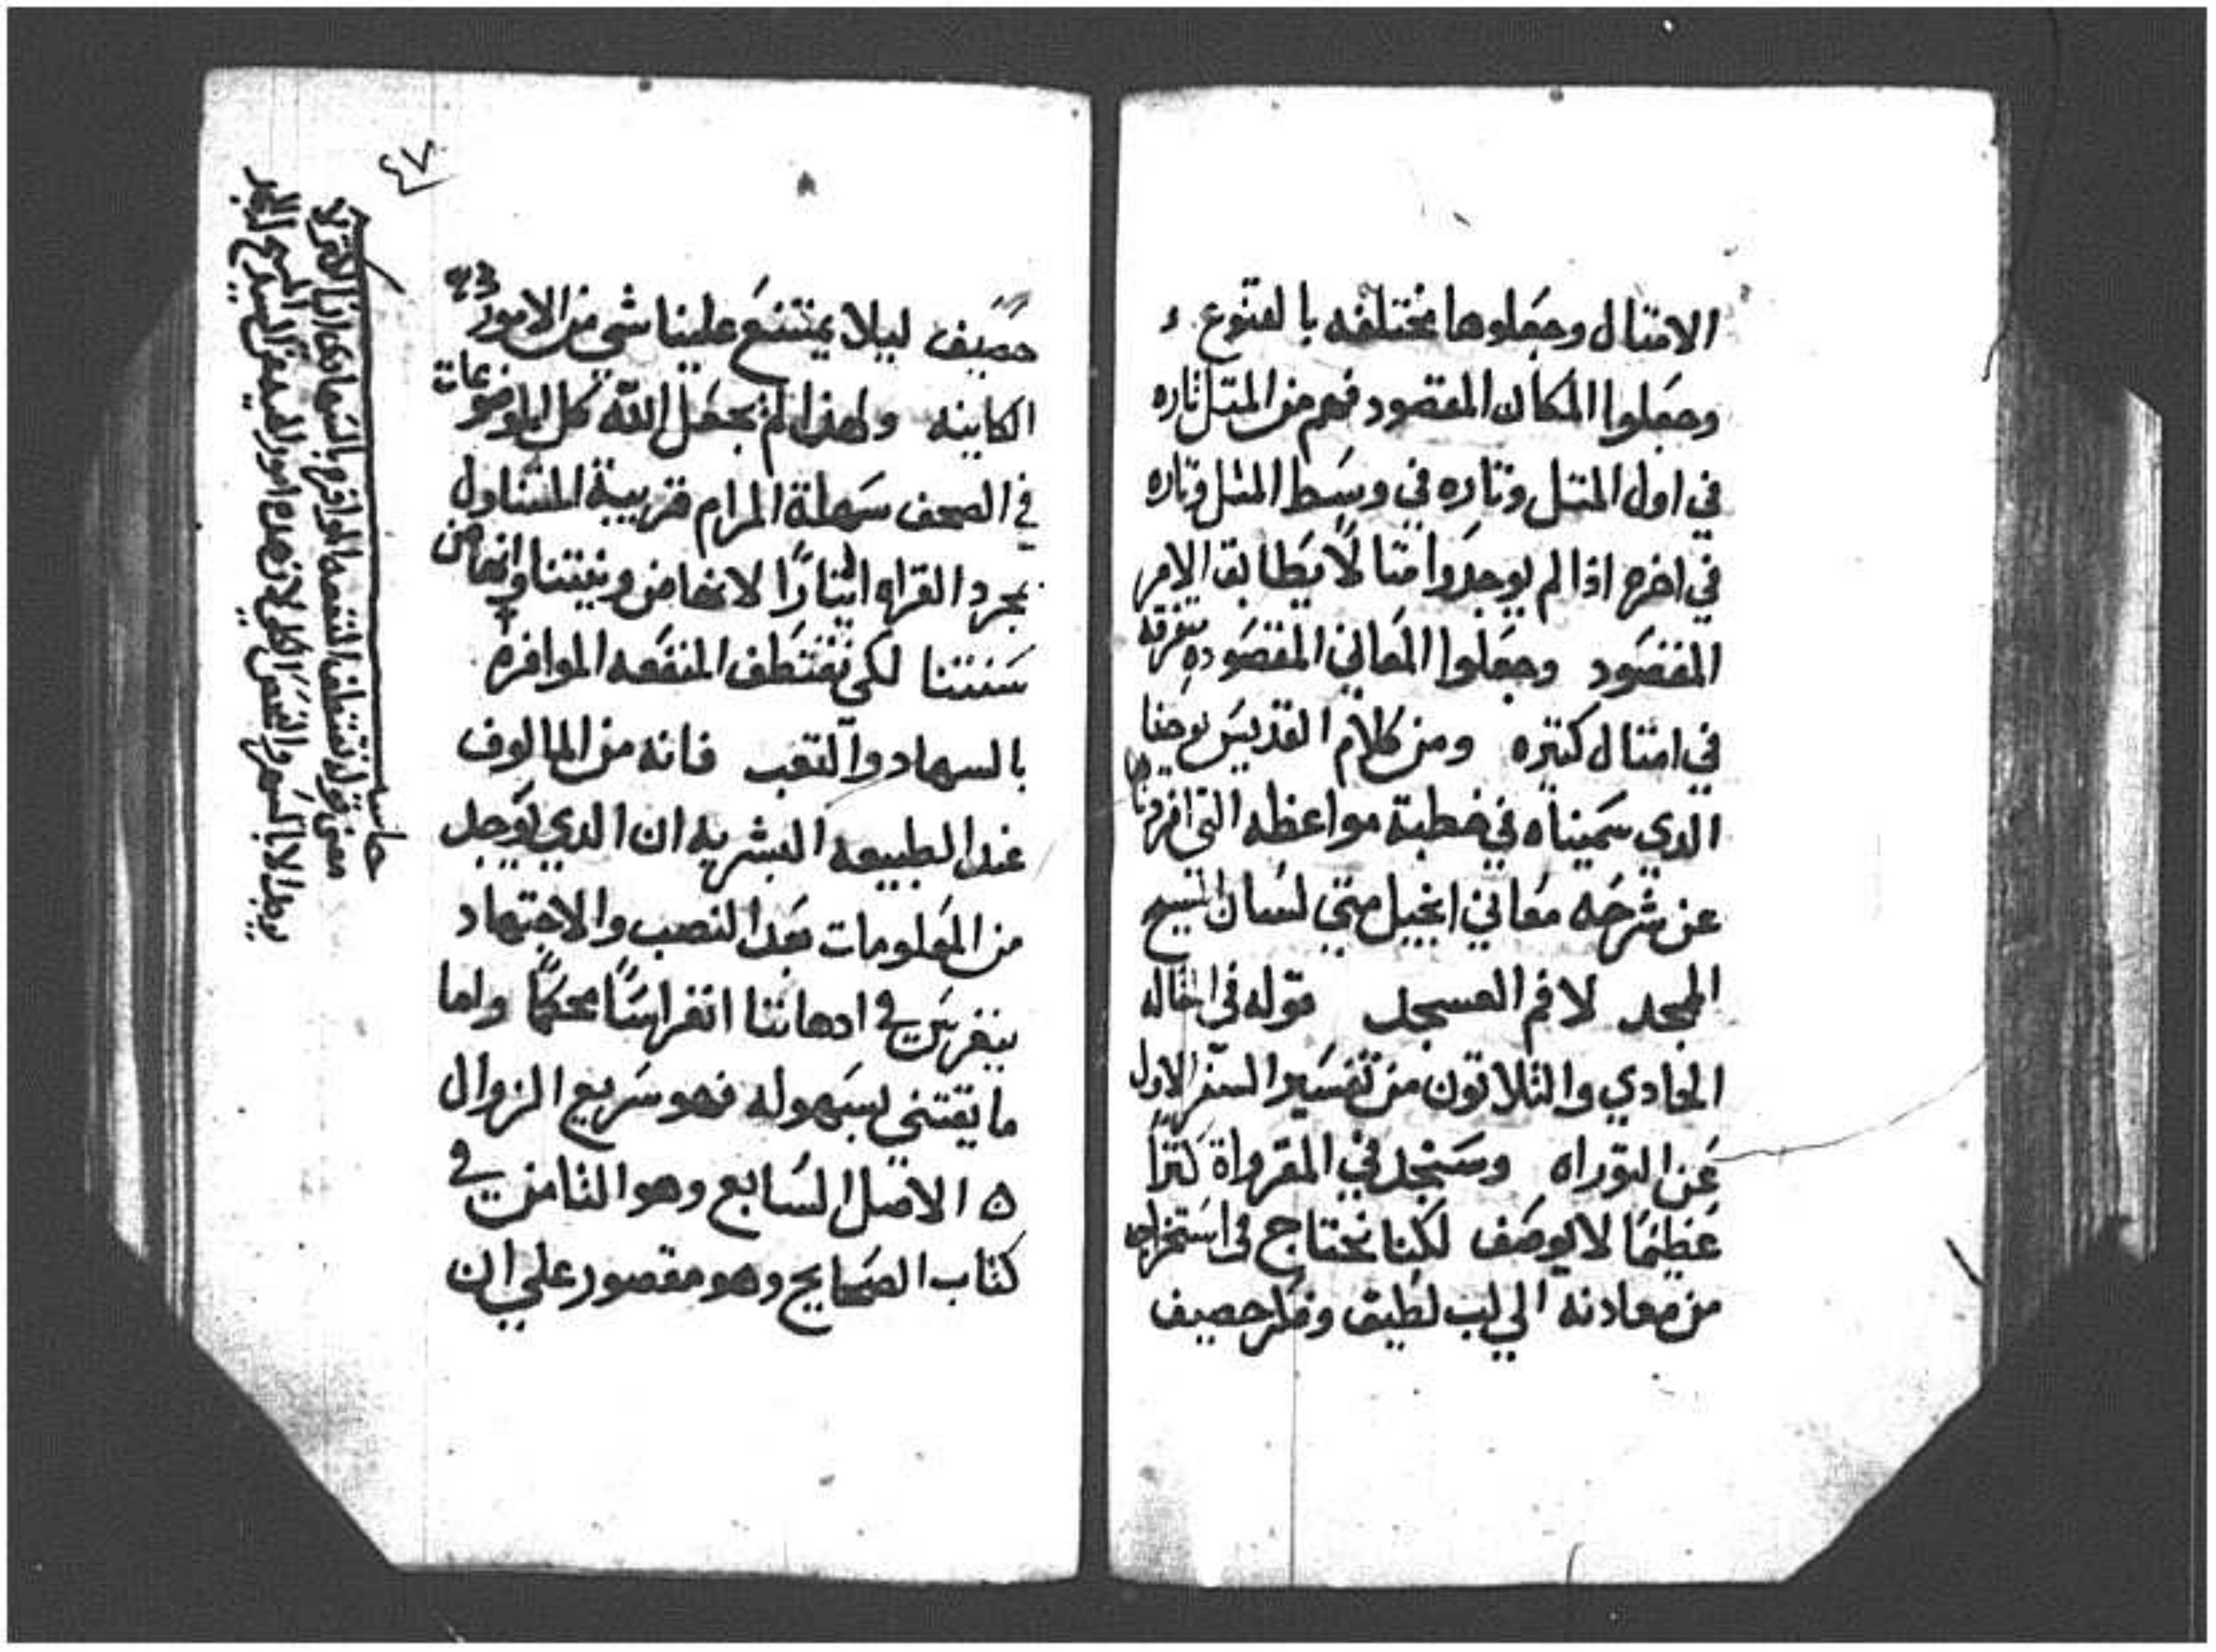 الامتال وجعلوها مختلفه بالتنوع
وجعلوا المكان المقصود فهم من المتل تاره
في اول المتل وتاره في وسط المثل وتاره
في اخره اذا لم يوجدوا متالًا يطابق الامر
المقصود وجعلوا المعاني المقصوده متفرقه
في امتال كتيره ومن كلام القديس يوحنا
الدي سميناه في خطبة مواعظه التي افردناها
عن شرحه معاني انجيل متي لسان المسيح
الممجد لا فم العسجد قوله في المقاله
الحادي والثلاتون من تفسير السفر الاول
عن التوراه وسنجد في المقرواة كنزًا
عظيمًا لا يوصف لكنا نحتاج في استخراجه
من معادنه الي لب لطيف وفكر حصيف
٤٧
حصيف ليلا يمتنع علينا شي من الامور
الكاينه ولهذا لم يجعل الله كل الموضوعات
في الصحف سهلة المرام قريبة المتناول
بمجرد القراه ايثارًا لانهاض ونيتنا وانهاض
سنتنا لكي نقتطف المنفعه الموافره
بالسهاد والتعب فانه من المالوف
عند الطبيعه البشريه ان الدي يوجد
من المعلومات بعد النصب والاجتهاد
ينغرس في ادهاننا انغراسًا محكمًا واما
ما يقتني بسهوله فهو سريع الزوال
٥ الاصل السابع وهو الثامن في
كتاب الصحايح وهو مقصور علي ان
حاشيه